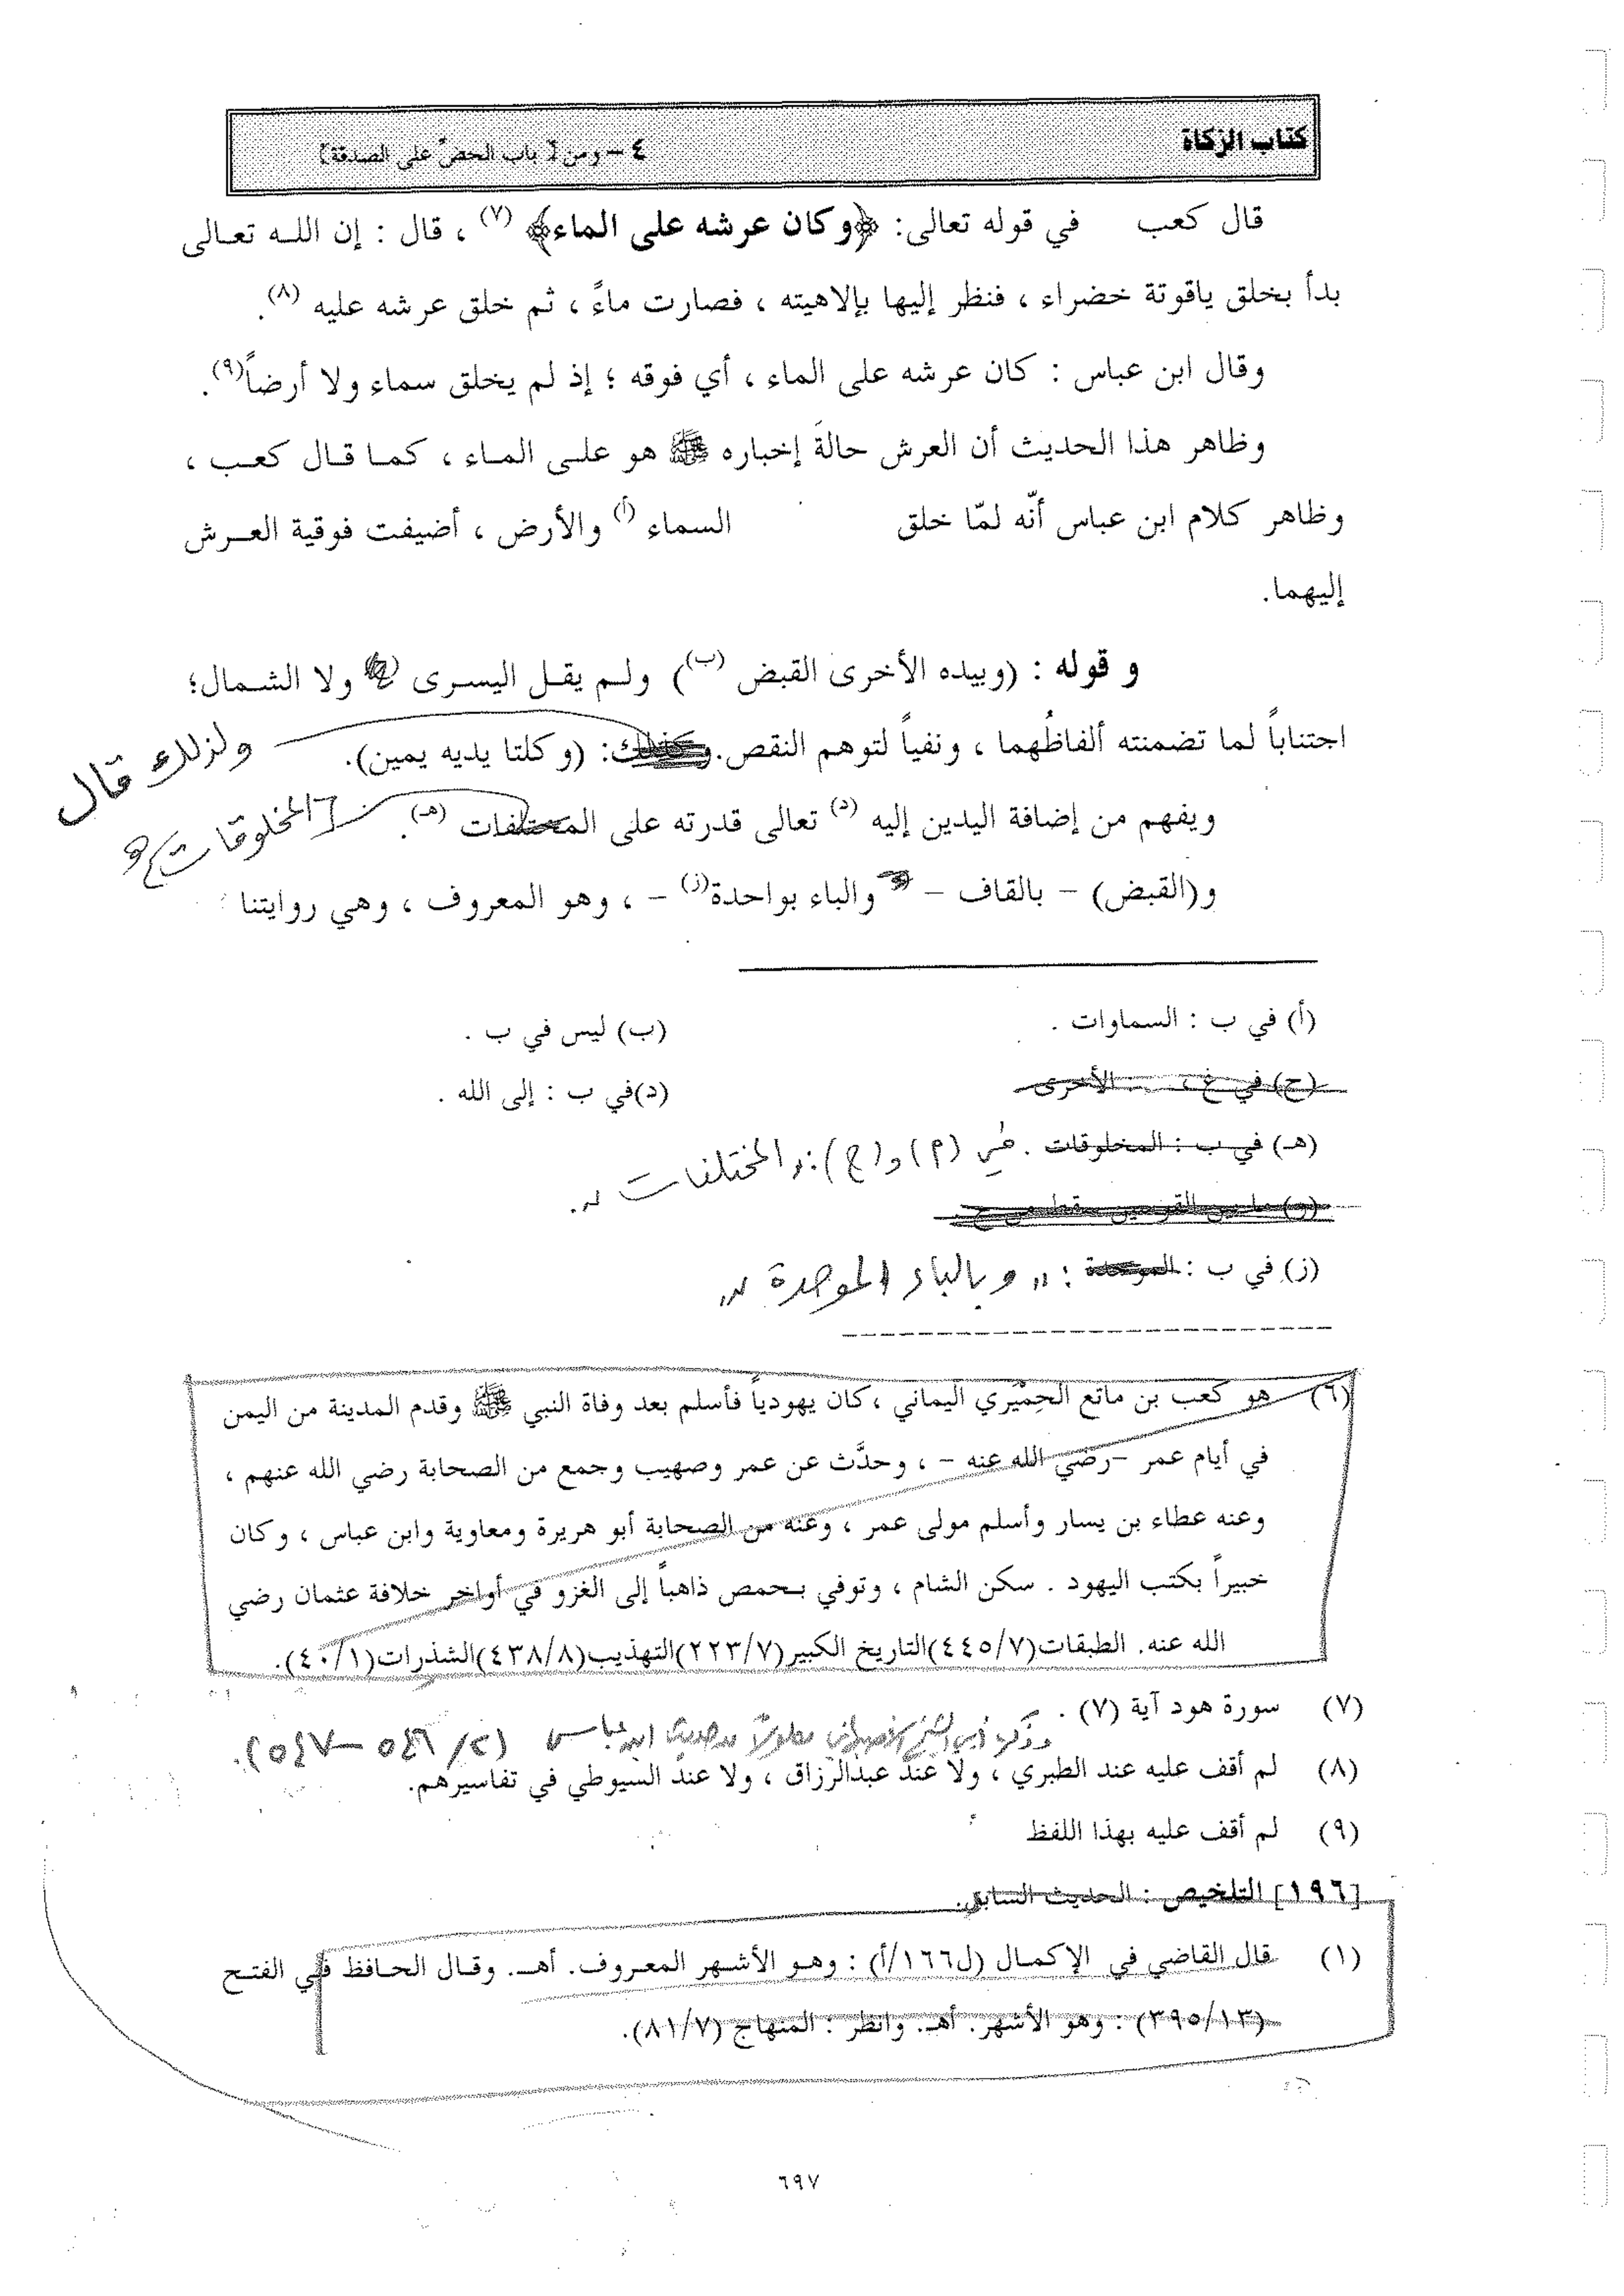 كتاب الزكاة
٤ – ومن [ باب الحضّ على الصدقة]
قال كعب في قوله تعالى: ﴿وكان عرشه على الماء﴾ (٧) ، قال : إن اللـه تعـالى
بدأ بخلق ياقوتة خضراء ، فنظر إليها بإلاهيته ، فصارت ماءً ، ثم خلق عرشه عليه (٨).
وقال ابن عباس : كان عرشه على الماء ، أي فوقه ؛ إذ لم يخلق سماء ولا أرضاً(٩).
وظاهر هذا الحديث أن العرش حالةَ إخباره ﷺ هو علـى المـاء ، كمـا قـال كعـب ،
وظاهر كلام ابن عباس أنّه لمّا خلق السماء (أ) والأرض ، أضيفت فوقية العـرش
إليهما.
و قوله : (وبيده الأخرى القبض (ب)) ولـم يقـل اليسـرى ولا الشـمال؛
اجتناباً لما تضمنته ألفاظُهما ، ونفياً لتوهم النقص. وكذلك: (وكلتا يديه يمين).
ولذلك قال
ويفهم من إضافة اليدين إليه (د) تعالى قدرته على المختلفات (هـ).
[المخلوقات]
و(القبض) – بالقاف – والباء بواحدة(ز) – ، وهو المعروف ، وهي روايتنا
(أ) في ب : السماوات .
(ب) ليس في ب .
(ج) في غ ، الأخرى
(د)في ب : إلى الله .
(هـ) في ب : المخلوقات . في (م) و(ج): "المختلفات".
(و) ما بين القوسين سقط من ج
(ز) في ب : الموحدة : "وبالباء الموحدة"
(٦) هو كعب بن ماتع الحِمْيَري اليماني ، كان يهودياً فأسلم بعد وفاة النبي ﷺ وقدم المدينة من اليمن
في أيام عمر –رضي الله عنه – ، وحدَّث عن عمر وصهيب وجمع من الصحابة رضي الله عنهم ،
وعنه عطاء بن يسار وأسلم مولى عمر ، وعنه من الصحابة أبو هريرة ومعاوية وابن عباس ، وكان
خبيراً بكتب اليهود . سكن الشام ، وتوفي بـحمص ذاهباً إلى الغزو في أواخر خلافة عثمان رضي
الله عنه. الطبقات(٤٤٥/٧)التاريخ الكبير(٢٢٣/٧)التهذيب(٤٣٨/٨)الشذرات(٤٠/١).
(٧) سورة هود آية (٧) .
وذكره أبو الشيخ الأصبهاني مطولاً من حديث ابن عباس (٥٤٦/٢–٥٤٧).
(٨) لم أقف عليه عند الطبري ، ولا عند عبدالرزاق ، ولا عند السيوطي في تفاسيرهم.
(٩) لم أقف عليه بهذا اللفظ
[١٩٦] التلخيص : الحديث السابق.
(١) قال القاضي في الإكمـال (ل١٦٦/أ) : وهـو الأشـهر المعـروف. أهـ. وقـال الحـافظ في الفتـح
(٣٩٥/١٣) : وهو الأشهر. أهـ. وانظر : المنهاج (٨١/٧).
٦٩٧